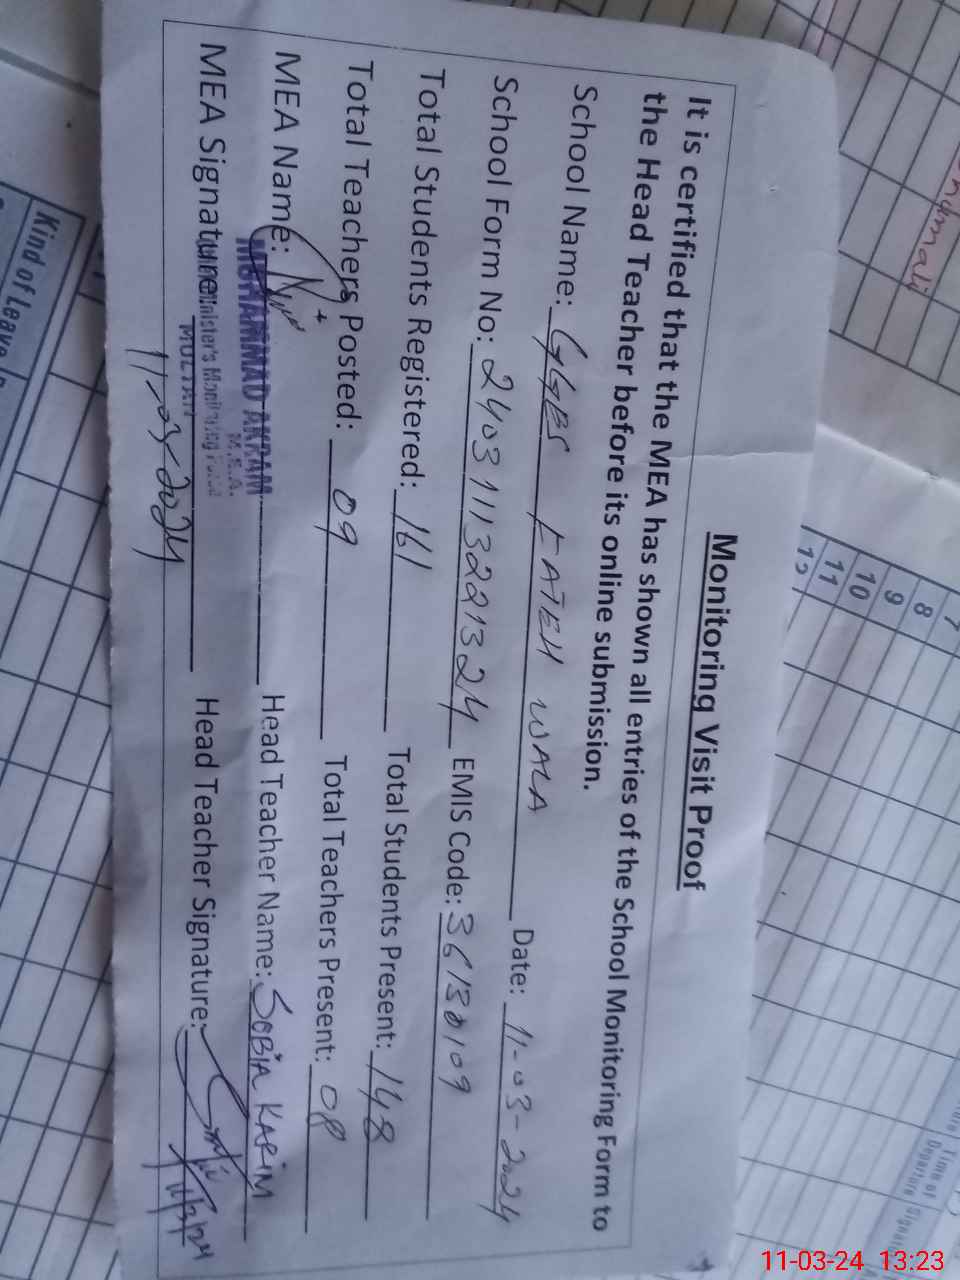 Monitoring Visit Proof
It is certified that the MEA has shown all entries of the School Monitoring Form to
the Head Teacher before its online submission.
School Name: GGES FATEH WALA Date: 11-03-2024
School Form No: 2403111322131324 EMIS Code: 36130109
Total Students Registered: 161 Total Students Present: 148
Total Teachers Posted: 09 Total Teachers Present: 08
MEA Name: MUHAMMAD AKRAM Head Teacher Name: SOBIA KARIM
M.E.A.
MEA Signature: Minister's Monitoring Force Head Teacher Signature:
MULTAN
11-03-2024
11/3/24
Kind of Leave
7
8
9
10
11
12
Time of
Departure
11-03-24 13:23